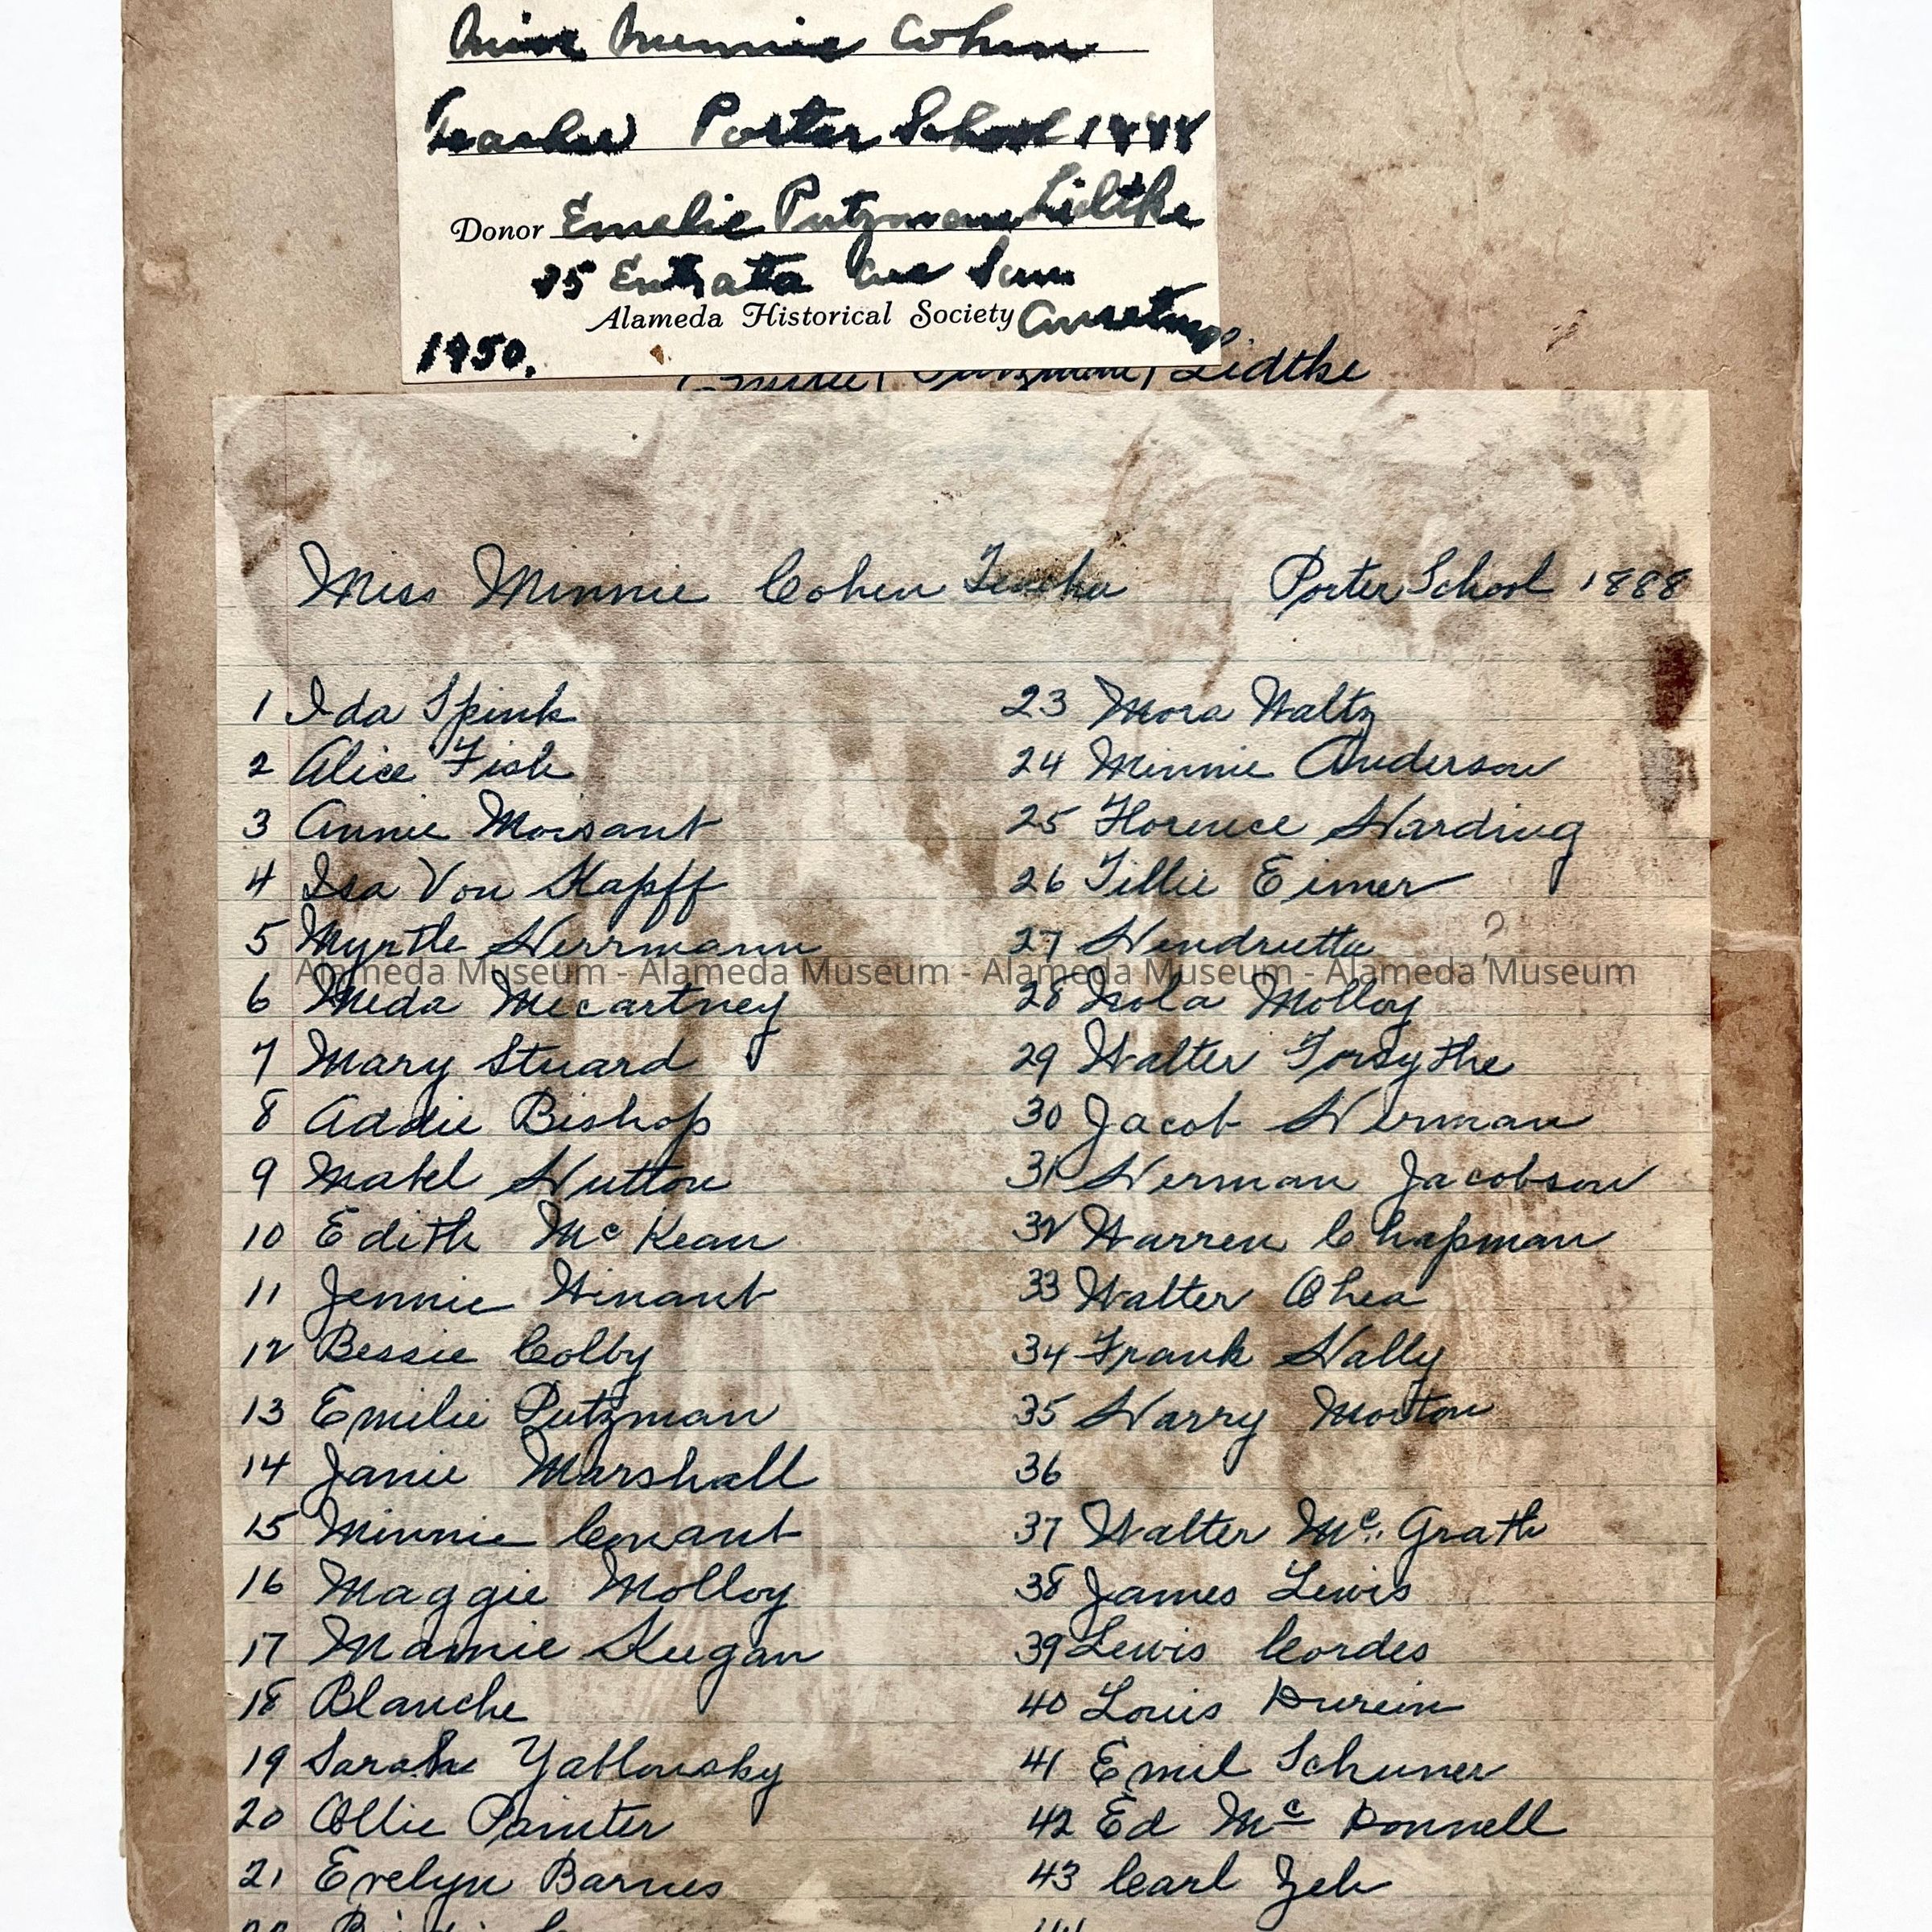 Miss Minnie Cohen
Teacher Porter School 1888
Donor Emelie Putzman Lidtke
35 Entrata Ave San
Alameda Historical Society Anselmo
1950.
Lidtke
Miss Minnie Cohen Teacher Porter School 1888
1 Ida Spink
2 Alice Fish
3 Annie Moisant
4 Isa Von Kapff
5 Myrtle Herrmann
6 Meda Mecartney
7 Mary Stuard
8 Addie Bishop
9 Mabel Hutton
10 Edith McKean
11 Jennie Winant
12 Bessie Colby
13 Emilie Putzman
14 Janie Marshall
15 Minnie Conant
16 Maggie Molloy
17 Mamie Keegan
18 Blanche
19 Sarah Yablonsky
20 Ollie Painter
21 Evelyn Barnes
23 Mora Waltz
24 Minnie Anderson
25 Florence Harding
26 Tillie Eimer
27 Hendrietta ?
28 Nola Molloy
29 Walter Forsythe
30 Jacob Herman
31 Herman Jacobson
32 Warren Chapman
33 Walter Ohea
34 Frank Hally
35 Harry Morton
36
37 Walter Mc. Grath
38 James Lewis
39 Lewis Cordes
40 Louis Durein
41 Emil Schuner
42 Ed Mc Donnell
43 Carl Zeh
Alameda Museum - Alameda Museum - Alameda Museum - Alameda Museum